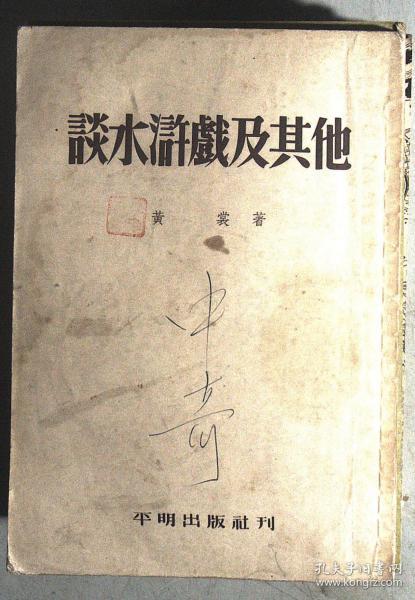 談水滸戲及其他
黃 裳 著
中奇
平明出版社刊
孔夫子旧书网
www.kongfz.com